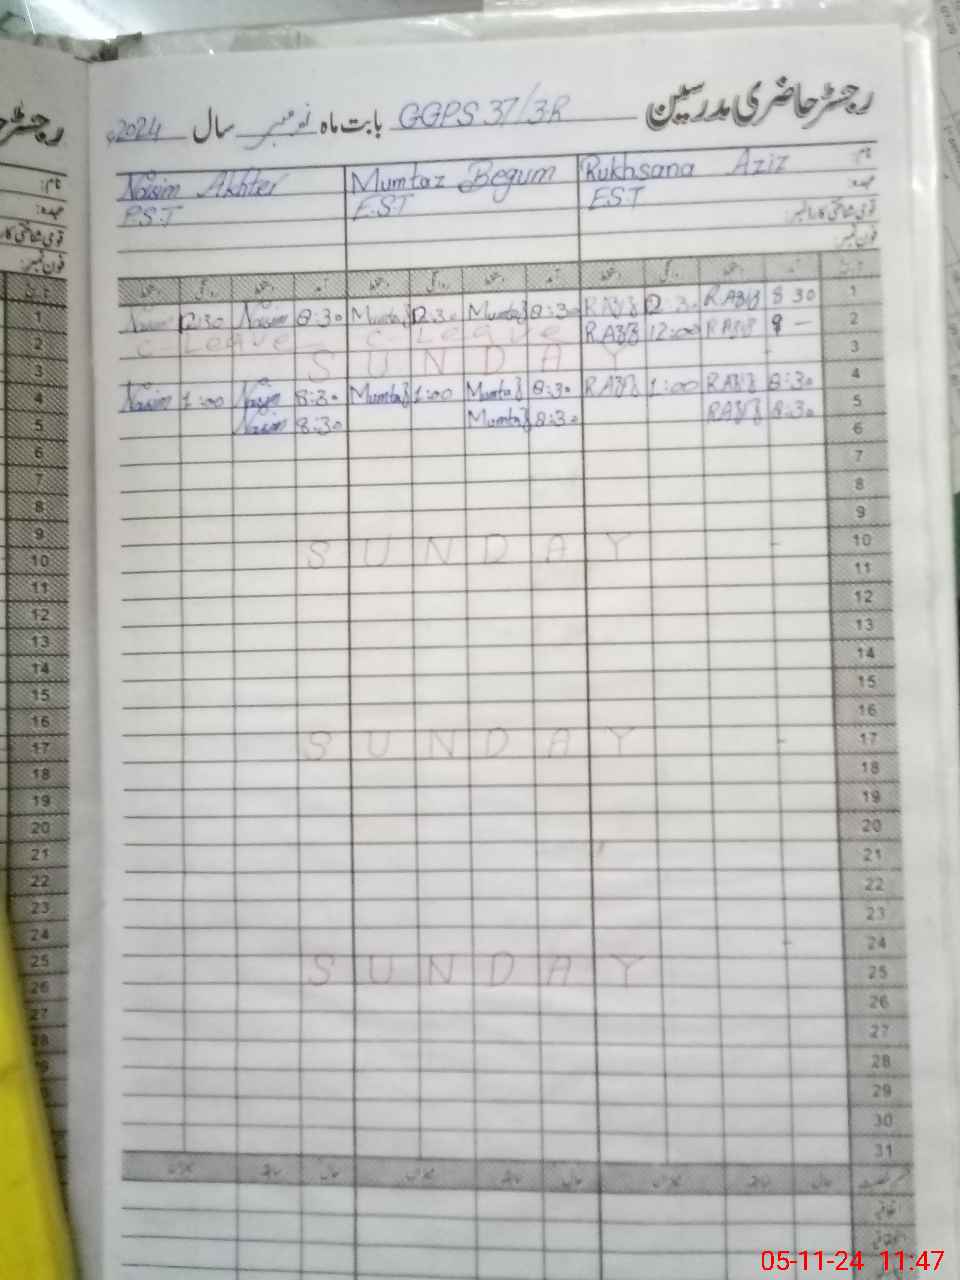 رجسٹر حاضری مدرسین GGPS 37/3R بابت ماہ نومبر سال 2024ء
نام: Rukhsana Aziz Mumtaz Begum Nasim Akhter
عہدہ: E.S.T E.S.T P.S.T
قومی شناختی کارڈ نمبر:
فون نمبر:
1 8 30 RAZIZ 12:30 RAZIZ 8:30 Mumtaz 12:30 Mumtaz 8:30 Nasim 12:30 Nasim
2 8 - RAZIZ 12:00 RAZIZ C-Leave C-Leave
3 SUNDAY
4 8:30 RAZIZ 1:00 RAZIZ 8:30 Mumtaz 1:00 Mumtaz 8:30 Nasim 1:00 Nasim
5 8:30 RAZIZ 8:30 Mumtaz 8:30 Nasim
6
7
8
9
10 SUNDAY
11
12
13
14
15
16
17 SUNDAY
18
19
20
21
22
23
24 SUNDAY
25
26
27
28
29
30
31
05-11-24 11:47